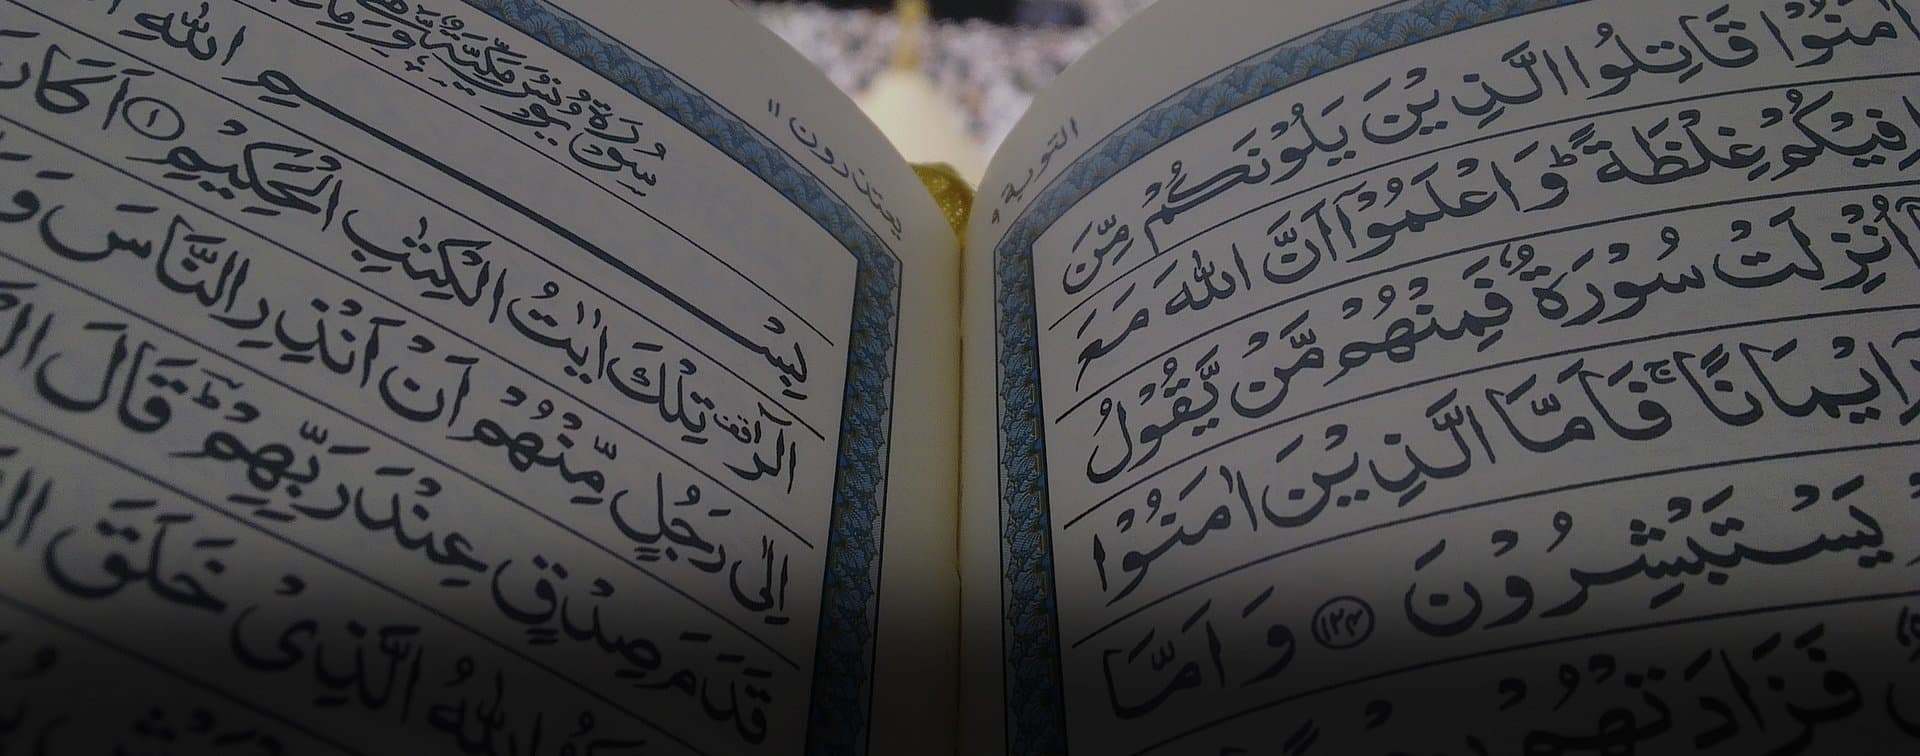 التوبة ٩
اٰمَنُوْا قَاتِلُوا الَّذِيْنَ يَلُوْنَكُمْ مِّنَ
فِيْكُمْ غِلْظَةً ؕ وَاعْلَمُوْۤا اَنَّ اللّٰهَ مَعَ
اُنْزِلَتْ سُوْرَةٌ فَمِنْهُمْ مَّنْ يَّقُوْلُ
اِيْمَانًا ۚ فَاَمَّا الَّذِيْنَ اٰمَنُوْا
يَسْتَبْشِرُوْنَ ﴿۱۲۴﴾ وَاَمَّا
فَزَادَتْهُمْ
يعتذرون ١١
سُوْرَةُ يُوْنُسَ مَكِّيَّةٌ
بِسْمِ اللّٰهِ
الٓرٰ تِلْكَ اٰيٰتُ الْكِتٰبِ الْحَكِيْمِ ﴿۱﴾ اَكَانَ
اِلٰى رَجُلٍ مِّنْهُمْ اَنْ اَنْذِرِ النَّاسَ وَ
قَدَمَ صِدْقٍ عِنْدَ رَبِّهِمْ ؕ قَالَ
اللّٰهُ الَّذِىْ خَلَقَ